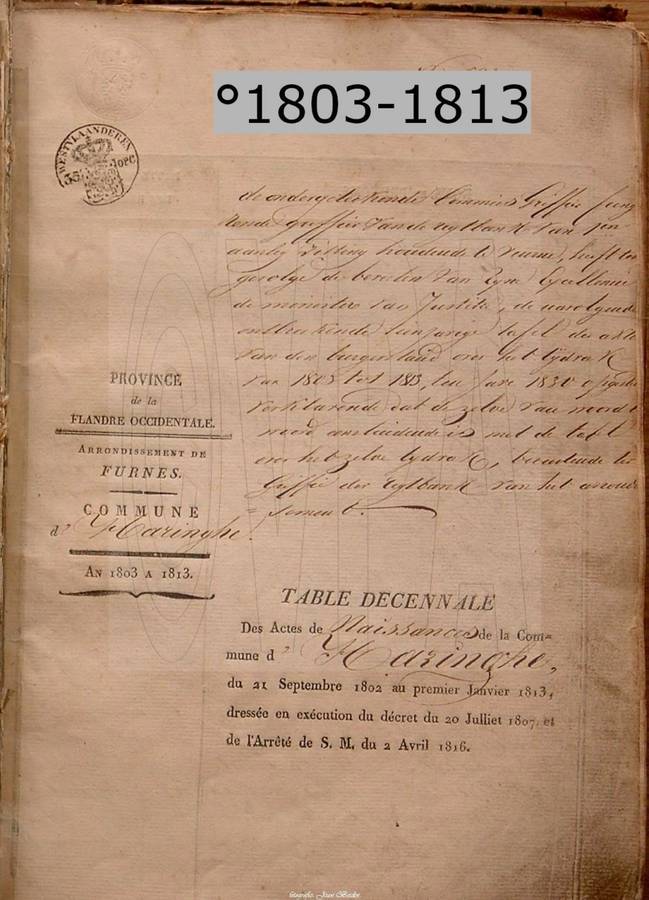 °1803-1813
WESTVLAANDEREN
35
de ondergeteekende Commies Griffie fung
eerende griffier van de regtbank van
zitting houdende te veurne, heeft ten
gevolge de bevelen van Zyne Excellencie
de minister van Justitie, de
ontbrekende tienjarige tafel der akte
van den burgerstand over het tydvak
van 1803 tot 1813, ten jare 1830
verklarende dat de zelve van woord t
woord is met de tafel
over het zelve tydvak, berustende ter
Griffie der regtbank van het arrondi
= sement.
PROVINCE
de la
FLANDRE OCCIDENTALE.
ARRONDISSEMENT DE
FURNES.
COMMUNE
d' Haringhe.
AN 1803 A 1813.
TABLE DECENNALE
Des Actes de Naissances de la Com=
mune d' Haringhe,
du 21 Septembre 1802 au premier Janvier 1813,
dressée en exécution du décret du 20 Julliet 1807, et
de l'Arrêté de S. M. du 2 Avril 1816.